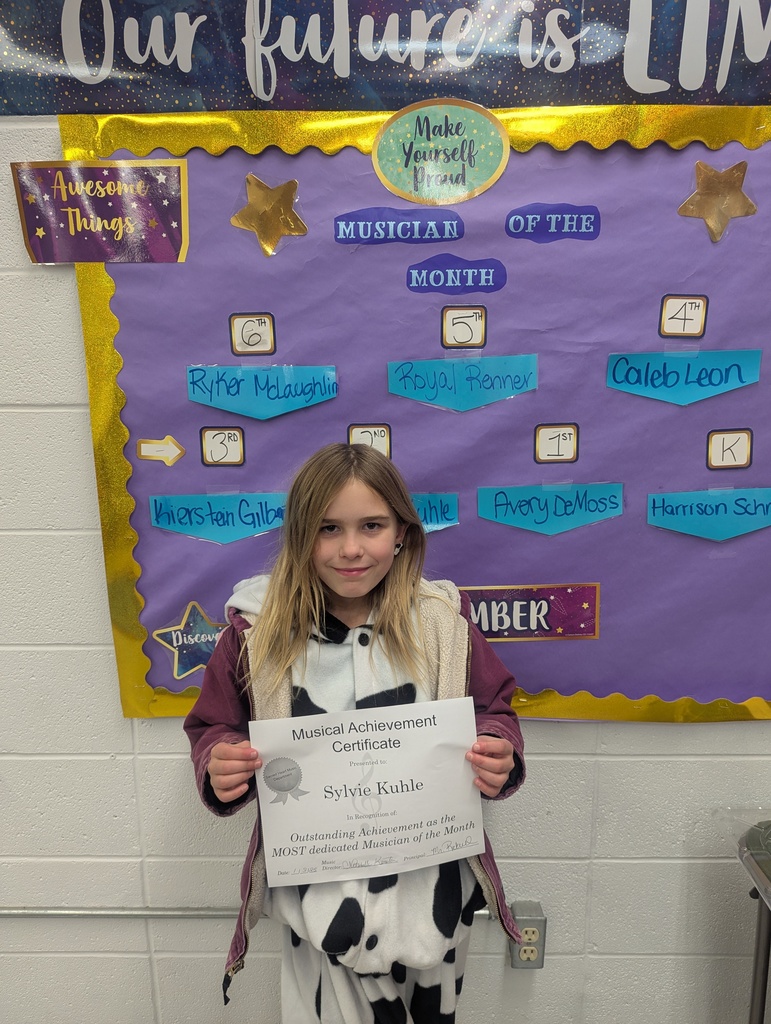 Our future is
Awesome
Things
Make
Yourself
Proud
MUSICIAN OF THE
MONTH
6TH
5TH
4TH
Ryker McLaughlin
Royal Renner
Caleb Leon
3RD
1ST
K
Kierstein
Avery DeMoss
Harrison
Musical Achievement
Certificate
Presented to:
Sylvie Kuhle
In Recognition of:
Outstanding Achievement as the
MOST dedicated Musician of the Month
Date:
Music
Director:
Principal: